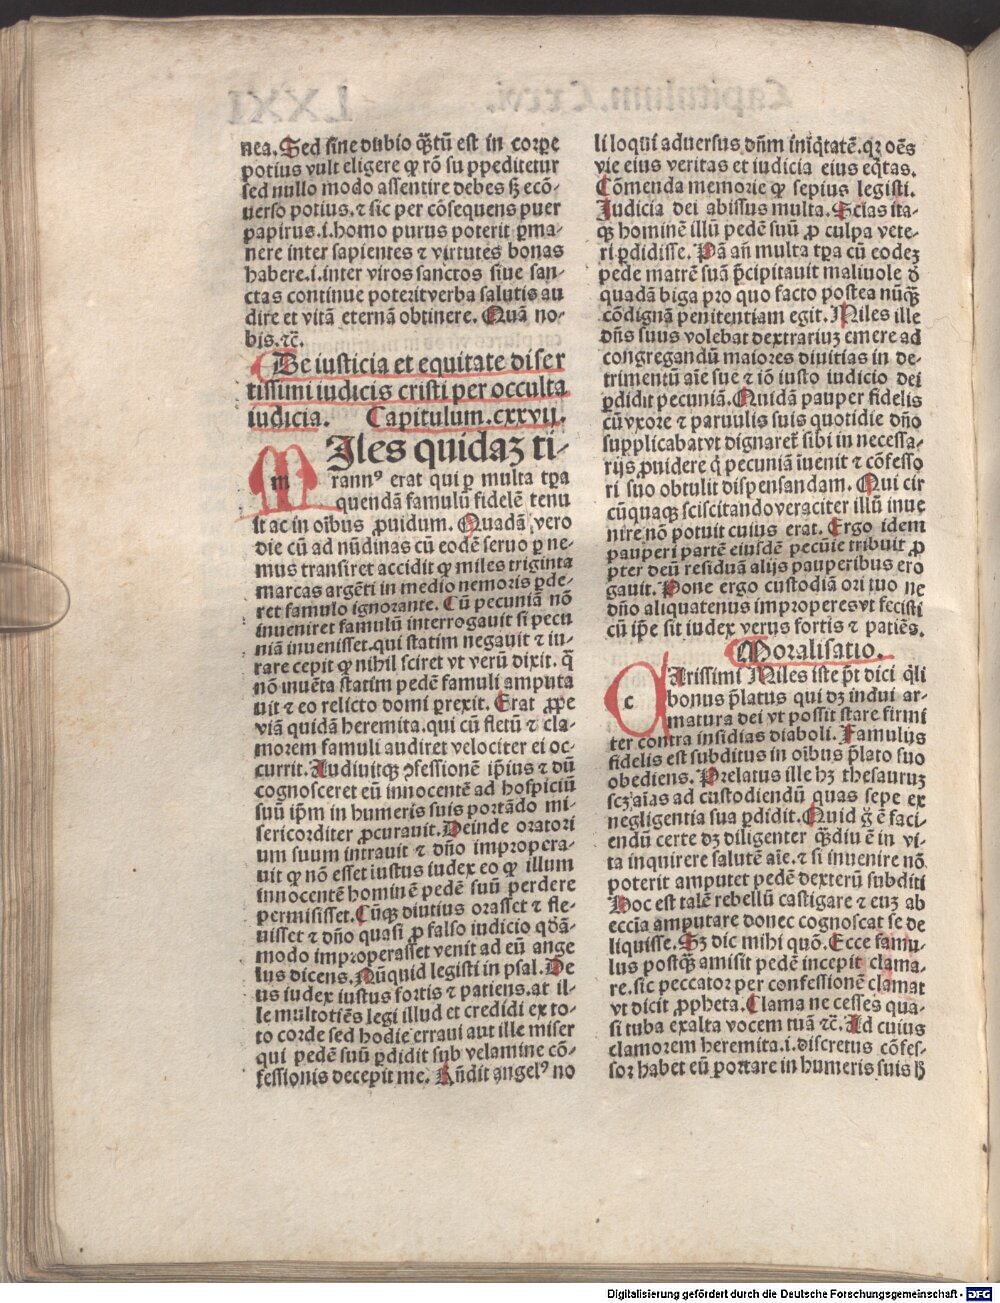 nea. Sed sine dubio qꝫtū est in corpe
potius vult eligere ꝙ rō su ꝑpeditetur
sed nullo modo assentire debes sꝫ ecō-
uerso potius. ⁊ sic per cōsequens puer
papirus .i. homo purus poterit ꝑma-
nere inter sapientes ⁊ virtutes bonas
habere .i. inter viros sanctos siue san-
ctas continue poteritverba salutis au
dire et vitā eternā obtinere. Quā no-
bis. ⁊c̄.
De iusticia et equitate diser
tissimi iudicis cristi per occulta
iudicia. Capitulum .cxxvii.
MIles quidaꝫ ti-
rannꝰ erat qui ꝑ multa tꝑa
quendā famulū fidelē tenu
it ac in oībus ꝓuidum. Quadā vero
die cū ad nūdinas cū eodē seruo ꝑ ne-
mus transiret accidit ꝙ miles triginta
marcas argēti in medio nemoris ꝑde-
ret famulo ignorante. Cū pecuniā nō
inueniret famulū interrogauit si pecu
niā inuenisset. qui statim negauit ⁊ iu-
rare cepit ꝙ nihil sciret vt verū dixit. q̄
nō inuēta statim pedē famuli amputa
uit ⁊ eo relicto domi ꝑrexit. Erat ꝓpe
viā quidā heremita. qui cū fletū ⁊ cla-
morem famuli audiret velociter ei oc-
currit. Audiuitqꝫ ꝯfessionē ip̄ius ⁊ dū
cognosceret eū innocentē ad hospiciū
suū ip̄m in humeris suis portādo mi-
sericorditer ꝓcurauit. Deinde oratori
um suum intrauit ⁊ dño improꝑera-
uit ꝙ nō esset iustus iudex eo ꝙ illum
innocentē hominē pedē suū perdere
permisisset. Cūqꝫ diutius orasset ⁊ fle-
uisset ⁊ dño quasi ꝓ falso iudicio qdā-
modo improperasset venit ad eū ange
lus dicens. Nūquid legisti in psal. De
us iudex iustus fortis ⁊ patiens. at il-
le multotiēs legi illud et credidi ex to-
to corde sed hodie erraui aut ille miser
qui pedē suū ꝑdidit sub velamine cō-
fessionis decepit me. Rn̄dit angelꝰ no
li loqui aduersus dn̄m iniq̇tatē. qꝛ oēs
vie eius veritas et iudicia eius eq̇tas.
Cōmenda memorie ꝙ sepius legisti.
Iudicia dei abissus multa. Scias ita-
qꝫ hominē illū pedē suū ꝓ culpa vete-
ri ꝑdidisse. Nā añ multa tꝑa cū eodeꝫ
pede matrē suā p̄cipitauit maliuole d̄
quadā biga pro quo facto postea nūqꝫ
cōdignā penitentiam egit. Miles ille
dn̄s suus volebat dextrariuꝫ emere ad
congregandū maiores diuitias in de-
trimentū aīe sue ⁊ iō iusto iudicio dei
ꝑdidit pecuniā. Quidā pauper fidelis
cū vxore ⁊ paruulis suis quotidie dño
supplicabatvt dignaret̄ sibi in necessa-
rijs ꝓuidere q̇ pecuniā īuenit ⁊ cōfesso
ri suo obtulit dispensandam. Qui cir
cūquaqꝫ sciscitandoveraciter illū inue
nire nō potuit cuius erat. Ergo idem
pauperi partē eiusdē pecūie tribuit ꝓ
pter deū residuā alijs pauperibus ero
gauit. Pone ergo custodiā ori tuo ne
dño aliquatenus improperesvt fecisti
cū ip̄e sit iudex verus fortis ⁊ patiēs.
Moralisatio.
CArissimi Miles iste p̄t dici q̇li
bonus p̄latus qui dꝫ indui ar-
matura dei vt possit stare firmi
ter contra insidias diaboli. Famulus
fidelis est subditus in oībus p̄lato suo
obediens. Prelatus ille hꝫ thesauruꝫ
scꝫ aīas ad custodiendū quas sepe ex
negligentia sua ꝑdidit. Quid ḡ ē faci-
endū certe dꝫ diligenter qꝫdiu ē in vi-
ta inquirere salutē aīe. ⁊ si inuenire nō
poterit amputet pedē dexterū subditi
Hoc est talē rebellū castigare ⁊ euꝫ ab
eccīa amputare donec cognoscat se de
liquisse. Sꝫ dic mihi quō. Ecce famu-
lus postqꝫ amisit pedē incepit clama-
re. sic peccator per confessionē clamat
vt dicit ꝓpheta. Clama ne cesses qua-
si tuba exalta vocem tuā ⁊c̄. Ad cuius
clamorem heremita .i. discretus cōfes-
sor habet eū portare in humeris suis h̄
Digitalisierung gefördert durch die Deutsche Forschungsgemeinschaft - DFG